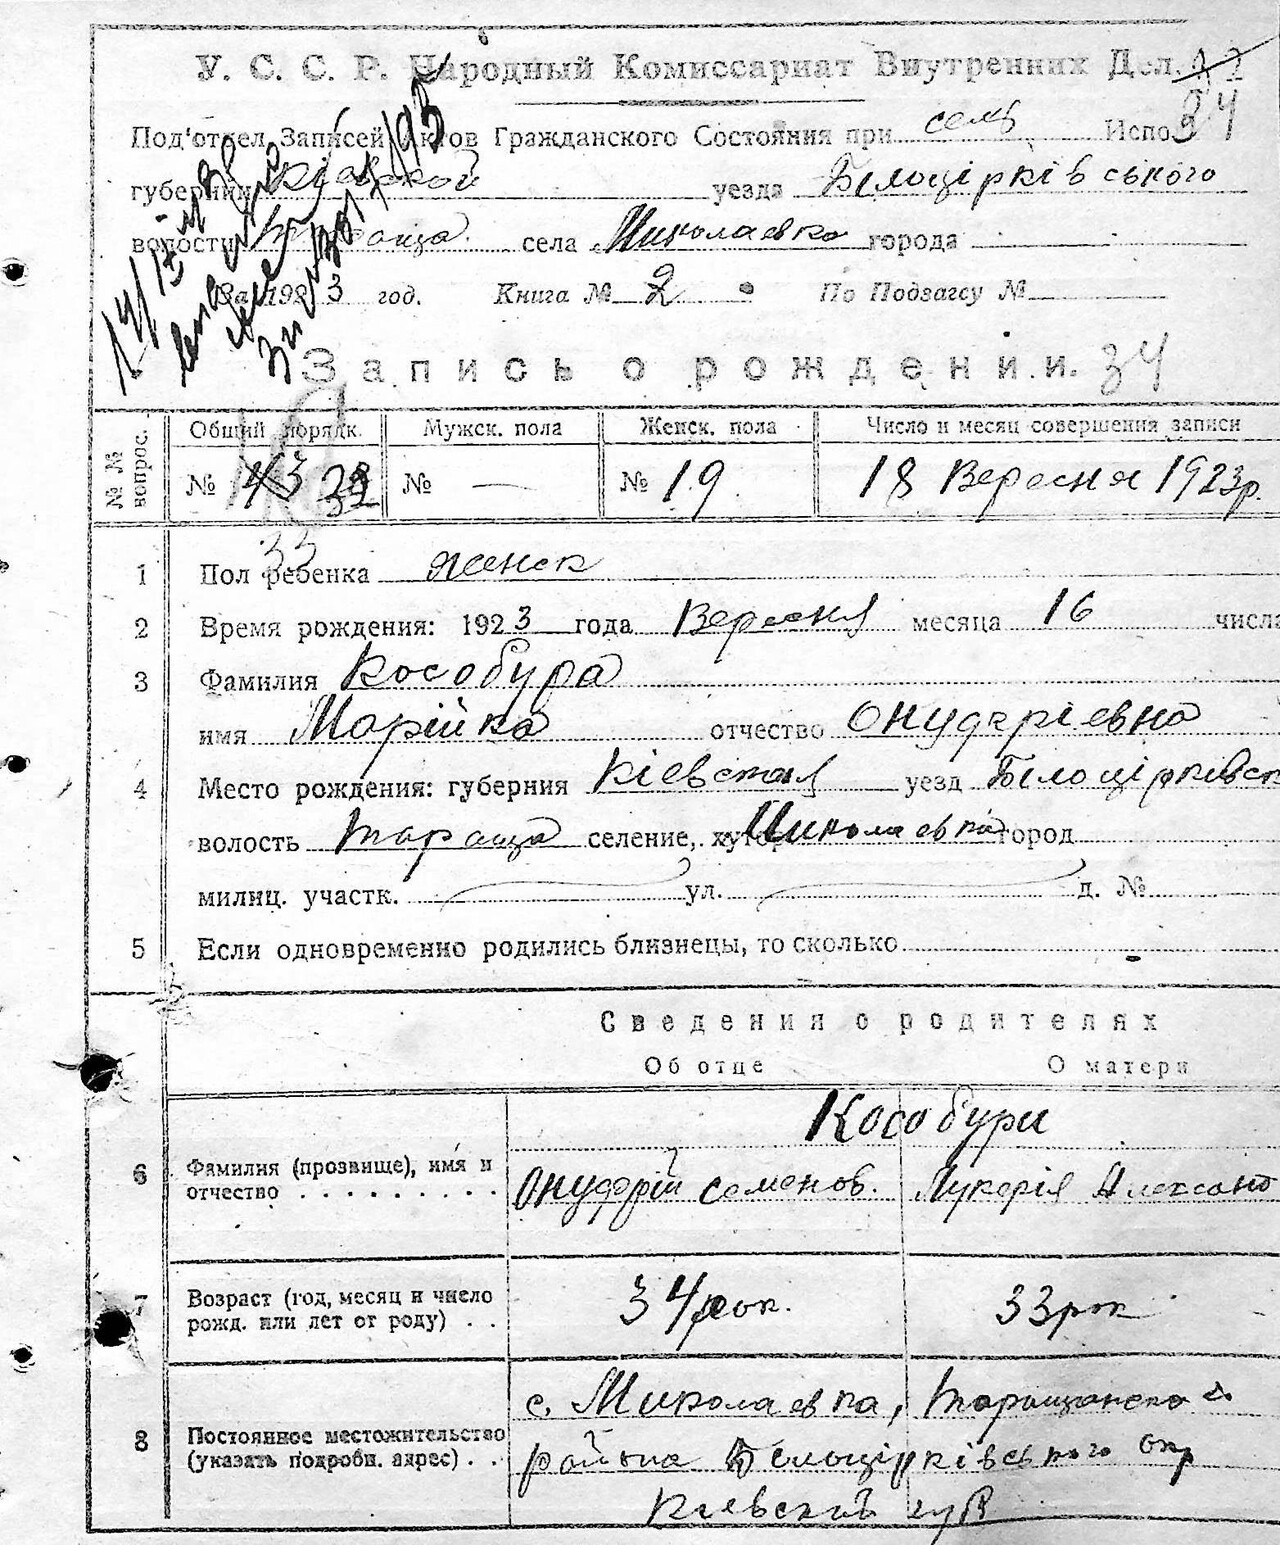 У. С. С. Р. Народный Комиссариат Внутренних Дел. 22
34
Под'отдел Записей Актов Гражданского Состояния при Испо
губернии Кіевской уезда Білоцірківського
волости Тараща села Миколаевка города
За 1923 год. Книга № 2 По Подзагсу №
Запись о рождении. 34
№ № вопрос.
Общий порядк. Мужск. пола Женск. пола Число и месяц совершения записи
№ 43 32 № — № 19. 18 Вересня 1923р.
33
1 Пол ребенка женск
2 Время рождения: 1923 года Вересня месяца 16 числа
3 Фамилия Кособура
имя Марійка отчество Онуфріевна
4 Место рождения: губерния Кіевская уезд Білоцірківск
волость Тараща селение, хутор Миколаевка город
милиц. участк. ул. д. №
5 Если одновременно родились близнецы, то сколько
Сведения о родителях
Об отце О матери
Кособури
6 Фамилия (прозвище), имя и
отчество . . . . . . . . . Онуфрій Семенов. Лукерія Александ
7 Возраст (год, месяц и число
рожд. или лет от роду) . . 34 рок. 33 рок
с. Миколаевка, Таращанско
8 Постоянное местожительство
(указать подробн. адрес) . . района Білоцірківського окр
Кіевской губ